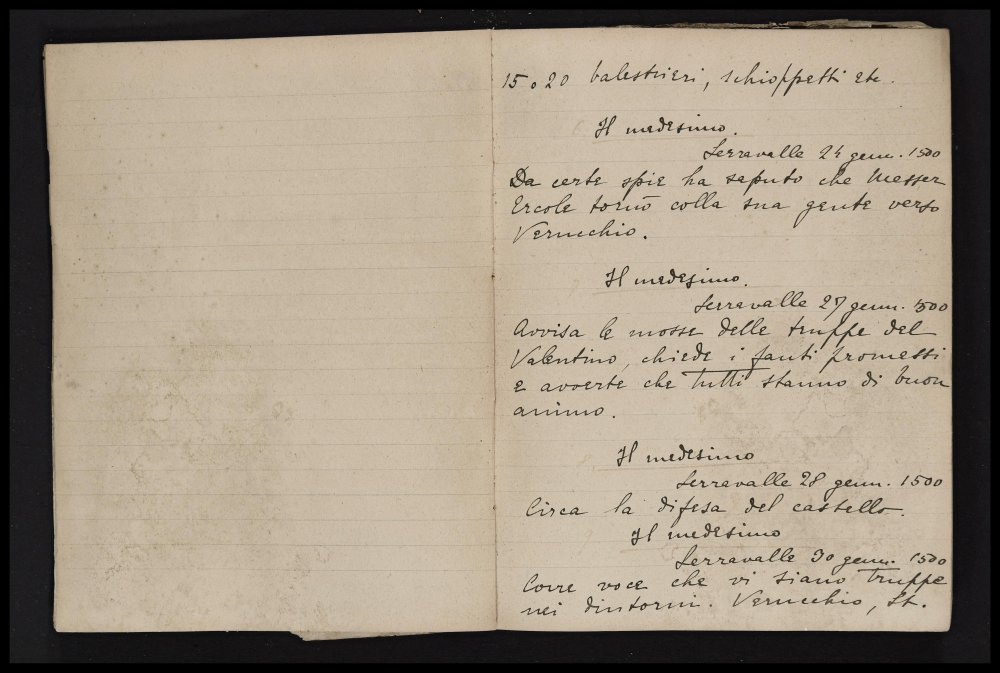 15 o 20 balestrieri, schioppetti etc.
Il medesimo.
Serravalle 24 genn. 1500
Da certe spie ha saputo che Messer
Ercole tornò colla sua gente verso
Verucchio.
Il medesimo.
Serravalle 27 genn. 1500
Avvisa le mosse delle truppe del
Valentino, chiede i fanti promessi
e avverte che tutti stanno di buon
animo.
Il medesimo
Serravalle 28 genn. 1500
Circa la difesa del castello.
Il medesimo
Serravalle 30 genn. 1500
Corre voce che vi siano truppe
nei dintorni. Verucchio, St.